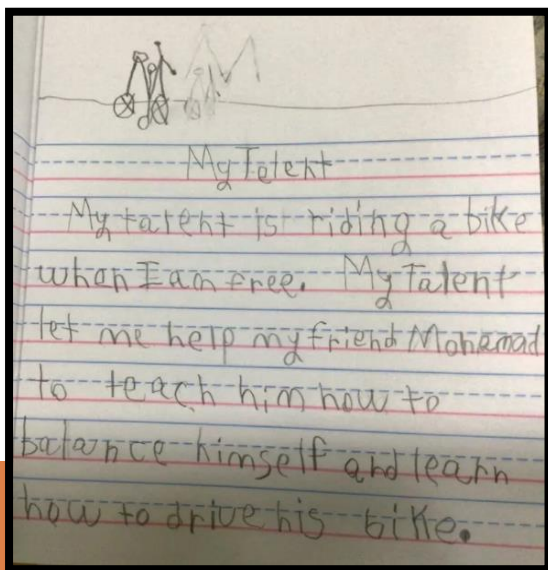 My Telent
My tarent is riding a bike
whan I am free. My Talent
let me help my friend Mohamad
to teach him how to
balance himself and learn
how to drive his bike.